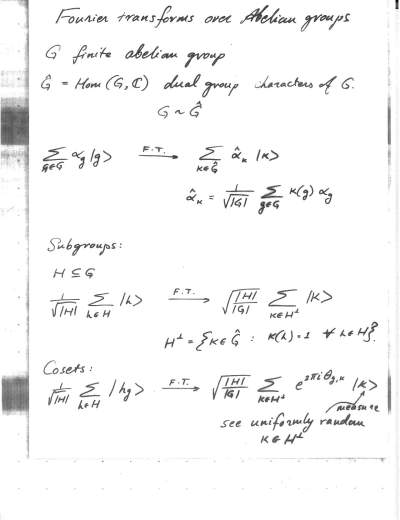 Fourier transforms over Abelian groups
G finite abelian group
Ĝ = Hom (G, ℂ) dual group characters of G.
G ~ Ĝ
∑_{g∈G} α_g |g> —F.T.→ ∑_{κ∈Ĝ} α̂_κ |κ>
α̂_κ = 1/√|G| ∑_{g∈G} κ(g) α_g
Subgroups:
H ⊆ G
1/√|H| ∑_{h∈H} |h> —F.T.→ √(|H|/|G|) ∑_{κ∈H^⊥} |κ>
H^⊥ = {κ∈Ĝ : κ(h)=1 ∀ h∈H}.
Cosets:
1/√|H| ∑_{h∈H} |hg> —F.T.→ √(|H|/|G|) ∑_{κ∈H^⊥} e^{2πiθ_{g,κ}} |κ>
measure
see uniformly random
κ∈H^⊥